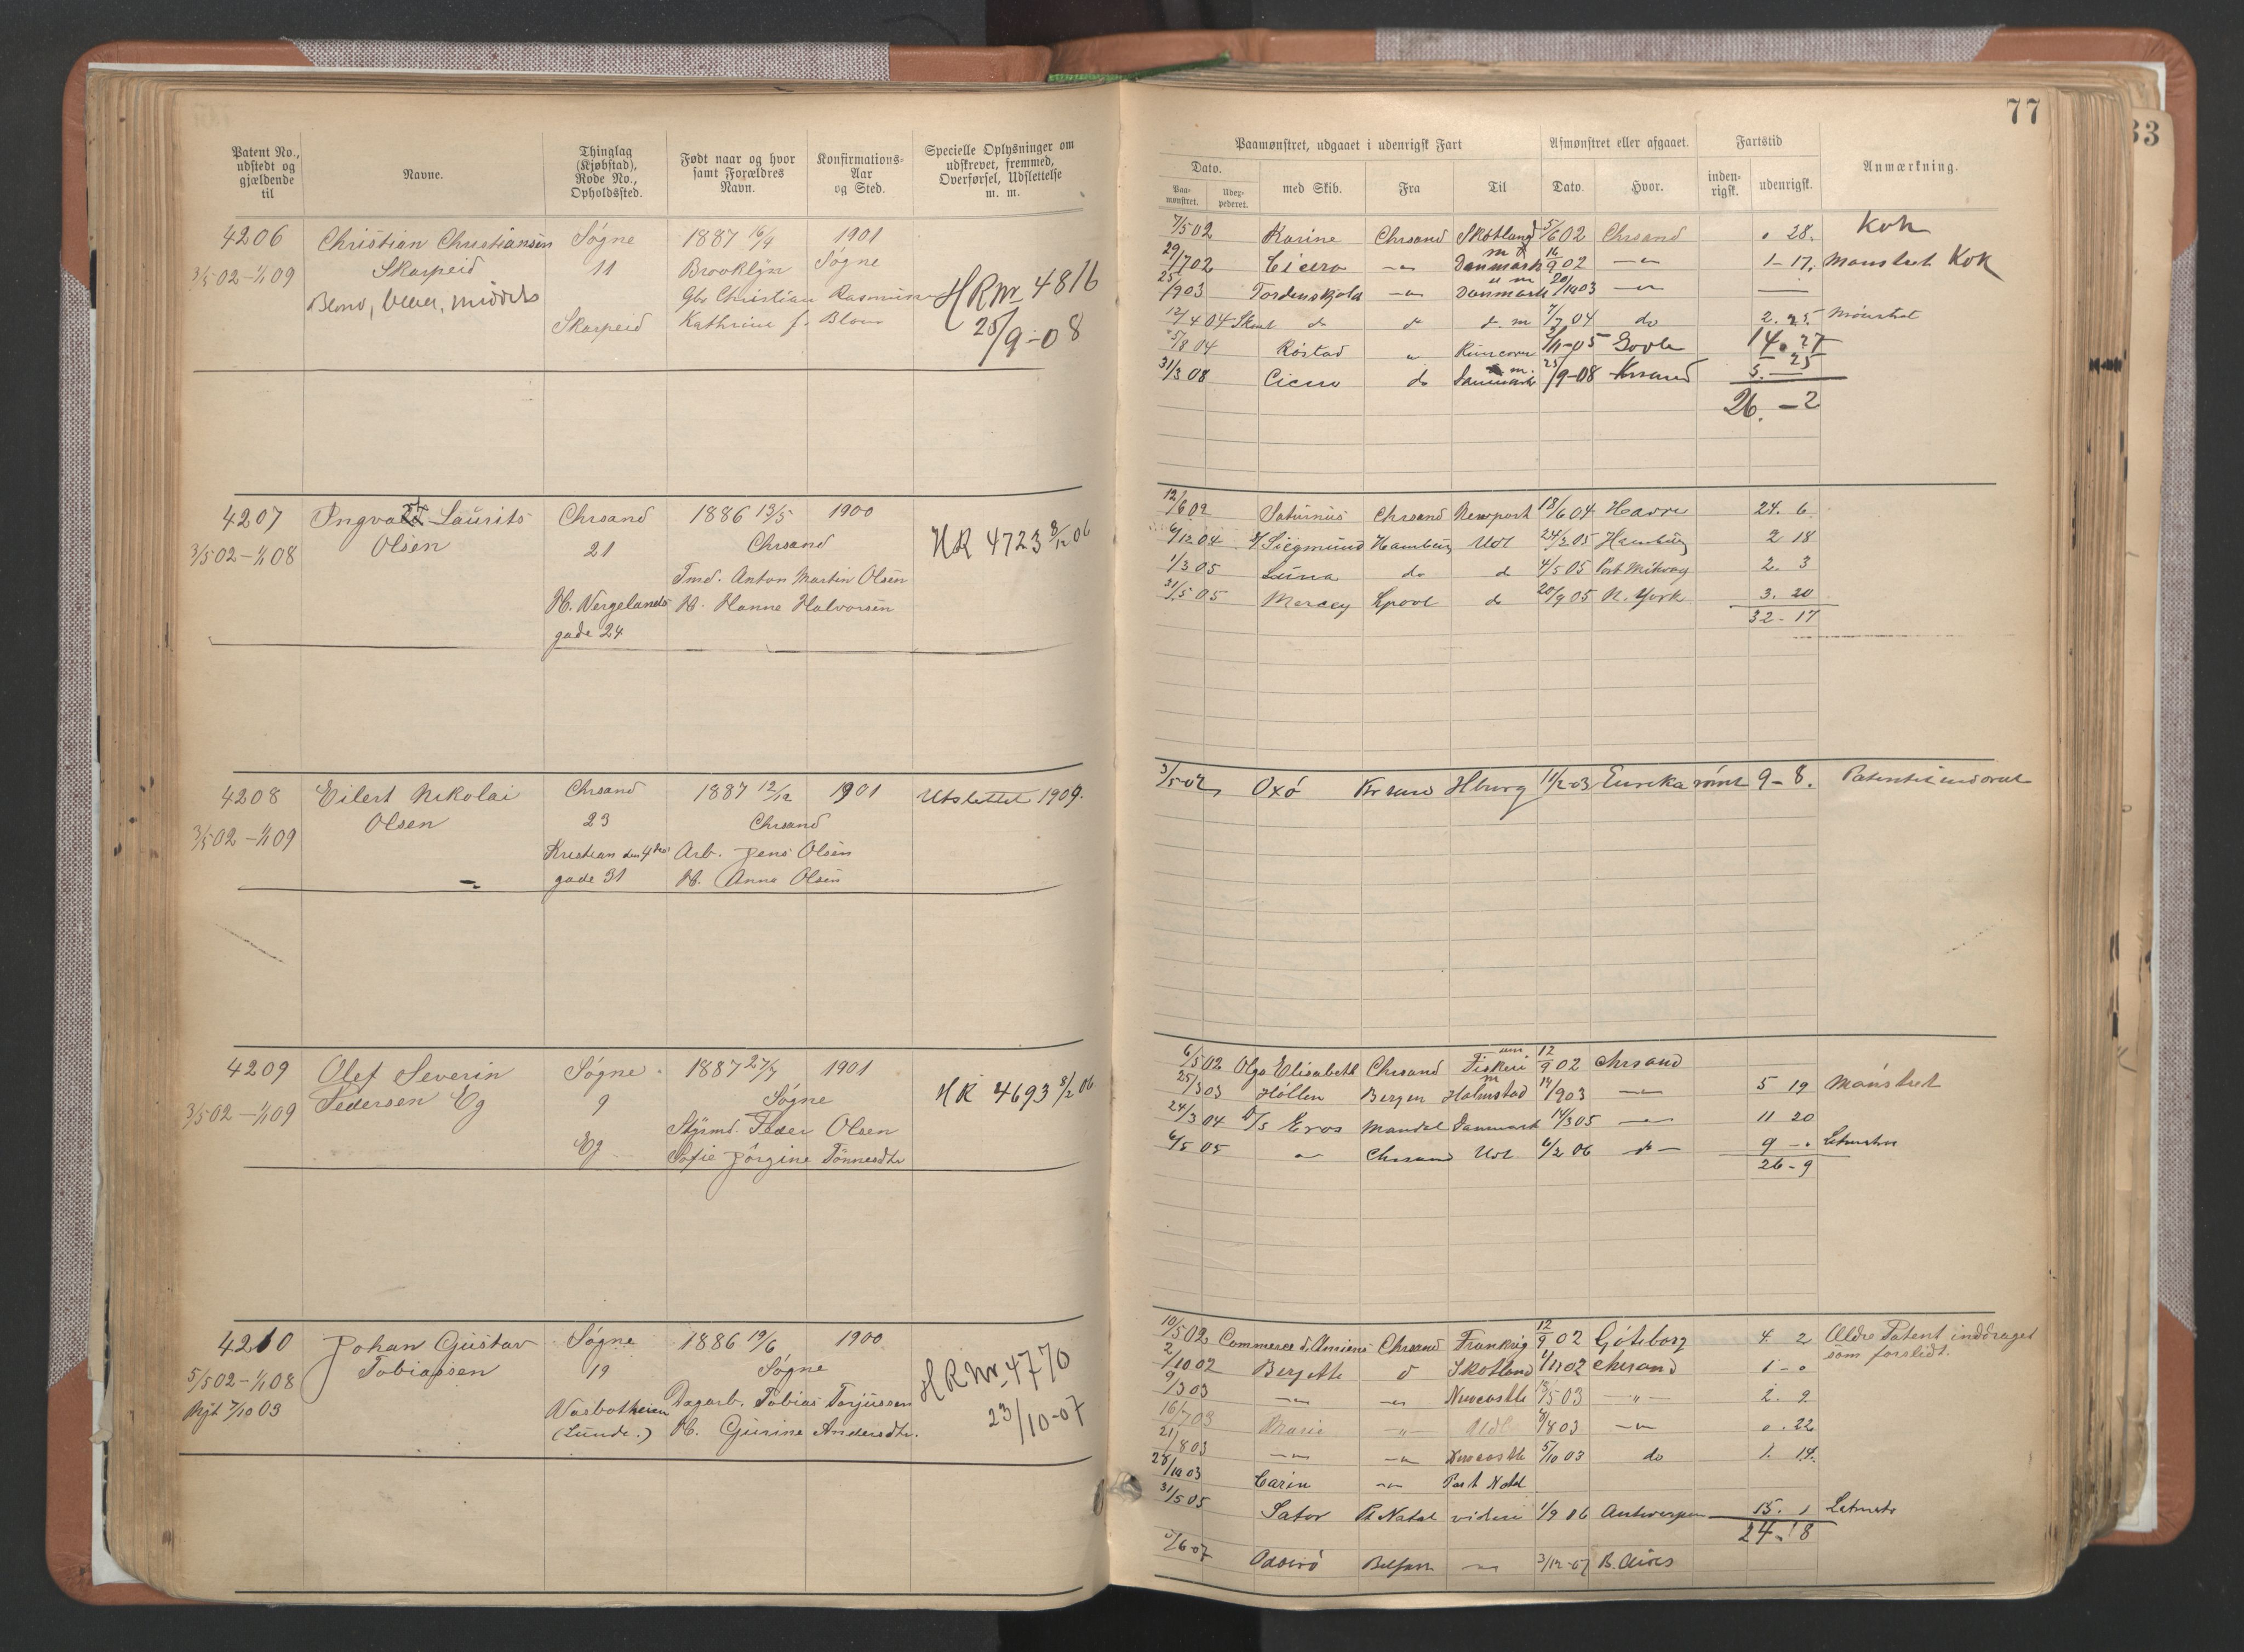 77
33
Patent No., udstedt og gjældende til
Navne.
Thinglag (Kjøbstad), Rode No., Opholdssted.
Født naar og hvor samt Forældres Navn.
Konfirmations-Aar og Sted.
Specielle Oplysninger om udskrevet, fremmed, Overførsel, Udslettelse m. m.
Paamønstret, udgaaet i udenrigsk Fart
Afmønstret eller afgaaet.
Fartstid
Anmærkning.
Dato.
Paa-mønstret.
Udex-pederet.
med Skib.
Fra
Til
Dato.
Hvor.
inden-rigsk.
udenrigsk.
4206 Christian Christiansen Søgne 1887 16/9 1901
3/5 02-1/1 09 Skarpeid 11 Brooklyn Søgne
Blond, blaa, middels Gbr Christian Rasmussen HRNr 4816
Skarpeid Kathrine f. Bloun 25/9-08
7/5 02 Karine Chrsand Skotland 5/6 02 Chrsand 0 28. Kok
29/7 02 Cicero -"- Danmark 16/9 02 -"- 1-17. Mønstret Kok
25/ 903 Tordenskjold -"- Danmark 20/10 03 -"-
12/4 04 Skuel do d d. m 7/7 04 do 2. 25. Mønstret
5/8 04 Røstad " Runcorn 05 Goole 14. 27
31/3 08 Cicero do Danmark 25/9-08 Krsand 5. 25
26. - 2
4207 Ingvald Laurits Chrsand 1886 13/5 1900
3/5 02-1/1 08 Olsen 21 Chrsand HR 4723 8/12 06
Tmd. Anton Martin Olsen
H. Vergelands H. Hanne Halvorsen
gade 24
12/6 02 Saturnus Chrsand Newport 18/6 04 Havre 24. 6
6/12 04 Siegmund Hamburg Udl 24/2 05 Hamburg 2 18
1/3 05 Luna do d 4/5 05 Port 2. 3
31/5 05 Mersey Lpool do 20/9 05 N. York 3. 20
32-17
4208 Eilert Nikolai Chrsand 1887 12/12 1901 Utslettet 1909.
3/5 02-1/1 09 Olsen 23 Chrsand
Kristian den 4des Arb. Jens Olsen
gade 31 H. Anna Olsen
3/5-02 Oxö Krsand Hburg 11/2-03 Eureka rømt 9-8. Patentet inddrat
4209 Olef Severin Søgne 1887 27/7 1901
3/5 02-1/1 09 Pedersen Eg 9 Søgne HR 4693 8/2 06
Styrmd. Peder Olsen
Eg Sofie Jørgine Tønnesdtr
6/5 02 Olga Elisabeth Chrsand Fiskeri 12/9 02 Chrsand
25/3 03 Høllen Bergen Halmstad 14/ 903 -"- 5 19 Mønstret
24/3 04 D/S Eros Mandal Danmark 14/3 05 -"- 11 20
6/5 05 -"- Chrsand Udl 6/2 06 -do- 9 - " Letmatros
26-9
4210 Johan Gustav Søgne 1886 19/6 1900
5/5 02-1/1 08 Tobiassen 19 Søgne HRNr. 4770
Nyt 7/10 03 Vasbotheien Dagarb. Tobias Torjussen 23/10-07
(Lunde.) H. Gurine Andersdtr.
10/5 02 Commerce d'Amiens Chrsand Frankrig 12/9 02 Göteborg 4. 2 Ældre Patent inddraget som forslidt.
2/10 02 Berjette d Skotland 11 02 Chrsand 1-0
9/3 03 -"- -"- Newcastle 5 03 -"- 2. 2
16/7 03 Marie -"- Udl 8 03 -"- 0. 22
21/8 03 -"- -"- Newcastle 5/10 03 do 1. 14.
28/10 03 Carin -"- Port Natal
31/5 05 Sator Pt Natal videre 1/9 06 Antwerpen 15. 1 Letmatr
24-18
6 07 Oddersö Belfast -"- 3/12-07 B. Aires